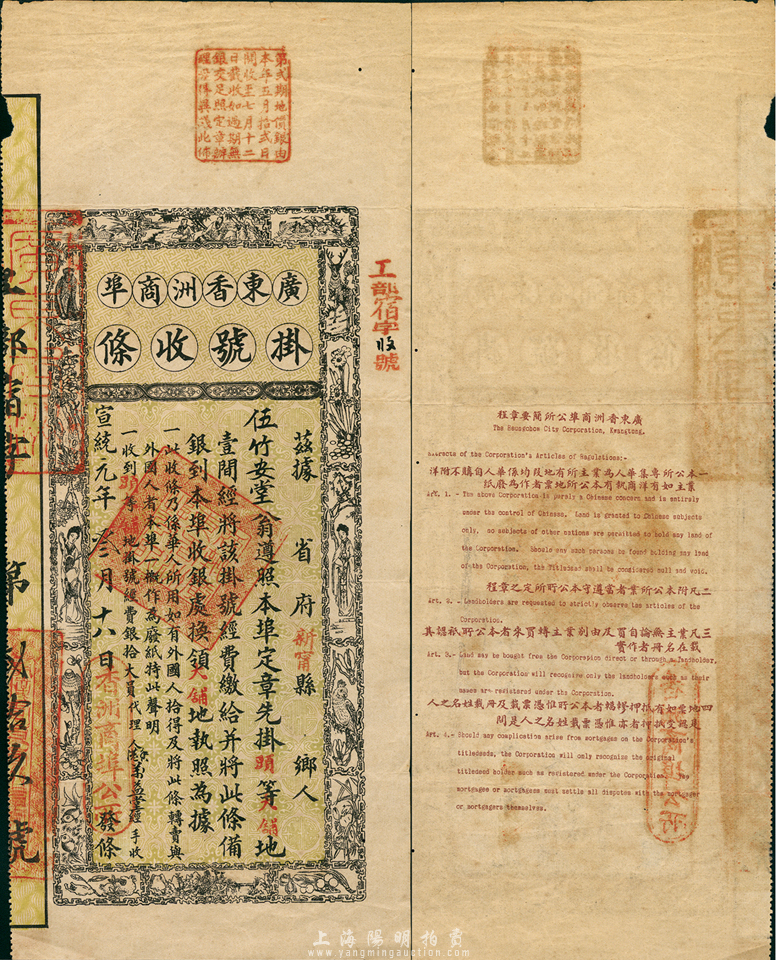 第弍期地價銀由
本年五月拾弍日
開收至七月十二
日截收如過期無
銀交足照定章辦
理
廣東香洲商埠
掛號收條
工部宿字 收號
茲據 省 府 新甯 縣 鄉人
伍竹安堂翁遵照本埠定章先掛 頭 等 大舖 地
壹間經將該掛號經費繳給并將此條備
銀到本埠收銀處換領 大舖 地執照為據
一此收條乃係華人所用如有外國人拾得及將此條轉賣與
外國人者本埠一概作為廢紙特此聲明
一收到 頭 等 大舖 地掛號經費銀拾大員代理人 經手收
宣統元年 三 月 十八 日 香洲商埠公所 發條
工部宿字 第 弍拾玖 號
廣東香洲商埠公所簡要章程
The Heungchow City Corporation, Kwangtong.
Extracts of the Corporation's Articles of Regulations:-
一本公所專集華人為業主所有地段均係華人自購不附洋
業主如有洋商執有本公所地票者作為廢紙
Art. 1. - The above Corporation is purely a Chinese concern and is entirely
under the control of Chinese. Land is granted to Chinese subjects
only, no subjects of other nations are permitted to hold any land of
the Corporation. Should any such persons be found holding any land
of the Corporation, the Titledeed shall be considered null and void.
二凡附本公所業者當遵守本公所所定之章程
Art. 2. - Landholders are requested to strictly observe the articles of the
Corporation.
三凡業主無論自買及由別業主轉買來者本公所祇認其
載在名冊者作實
Art. 3. - Land may be bought from the Corporation direct or through a landholder,
but the Corporation will recognise only the landholders such as their
names are registered under the Corporation.
四地業如有抵押轇轕者本公所惟憑票載及冊載姓名之人
是認受抵押者亦惟憑票載姓名之人是問
Art. 4. - Should any complication arise from mortgages on the Corporation's
titledeeds, the Corporation will only recognize the original
titledeed holder such as registered under the Corporation. The
mortgagee or mortgagees must settle all disputes with the mortgager
or mortgagers themselves.
上海陽明拍賣
www.yangmingauction.com